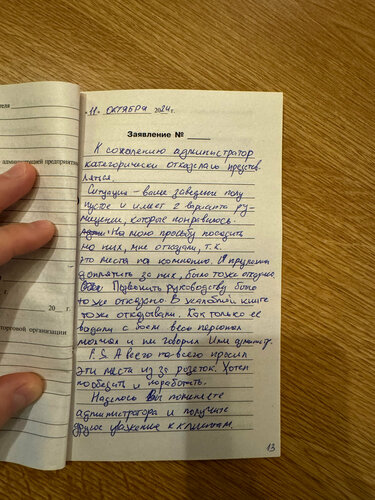 ателя
администрацией предприятия
20__ г.
торговой организации
г.
„11. ОКТЯБРЯ 2024 г.
Заявление № ____
К сожалению администратор
категорически отказалась представ-
ляться.
Ситуация – ваше заведение полу
пустое и имеет 2 варианта
мещении, которое понравилось.
На мою просьбу посадить
на них, мне отказали, т.к.
это места на компанию. Я предложил
доплатить за них, было тоже отказано.
Позвонить руководству было
тоже отказано. В жалобной книге
тоже отказывали. Как только ее
выдали с боем весь персонал
молчал и не говорил имя
P.S. А всего на всего просил
эти места из за розеток. Хотел
пообедать и поработать.
Надеюсь Вы поменяете
администратора и получите
другое уважение к клиентам.
13